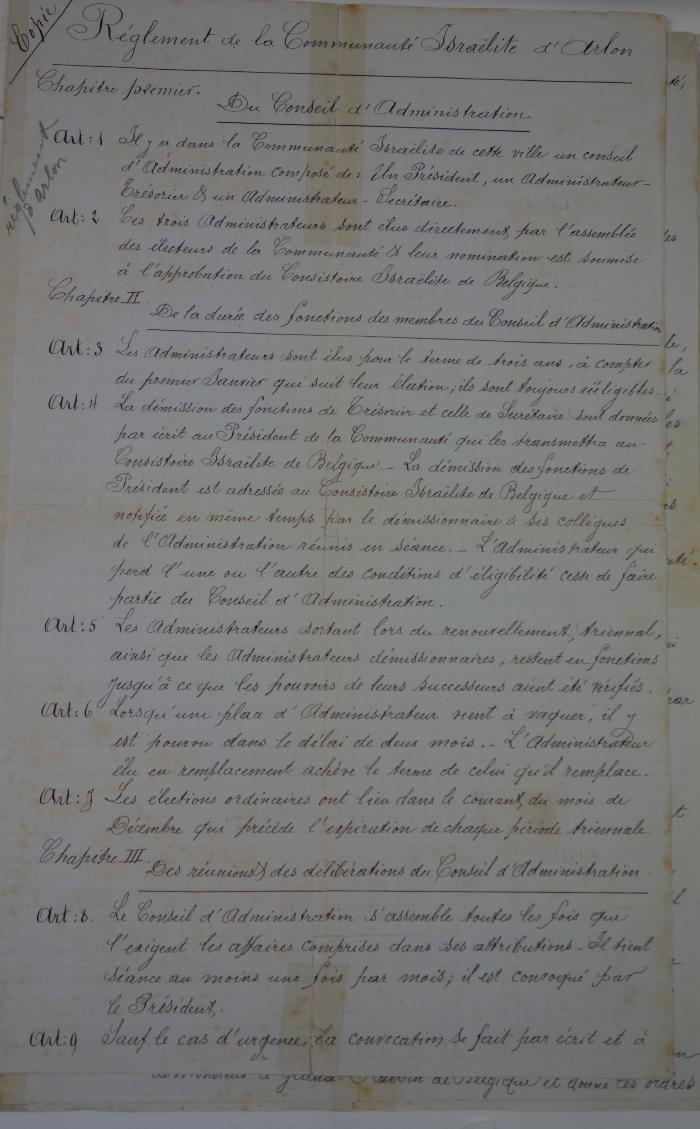 Copie
Réglement de la Communauté Israëlite d'Arlon
Chapitre premier.
Du Conseil d'Administration.
réglement
d'arlon
Art: 1 Il y a dans la Communauté Israëlite de cette ville un conseil
d'Administration composé de: Un Président, un Administrateur-
Trésorier & un Administrateur-Secrétaire.
Art: 2 Ces trois Administrateurs sont élus directement par l'assemblée
des électeurs de la Communauté & leur nomination est soumise
à l'approbation du Consistoire Israëlite de Belgique.
Chapitre II.
De la durée des fonctions des membres du Conseil d'Administration
Art: 3 Les Administrateurs sont élus pour le terme de trois ans, à compter
du premier Janvier qui suit leur élection; ils sont toujours rééligibles.
Art: 4 La démission des fonctions de Trésorier et celle de Secrétaire sont données
par écrit au Président de la Communauté qui les transmettra au
Consistoire Israëlite de Belgique. - La démission des fonctions de
Président est adressée au Consistoire Israëlite de Belgique et
notifiée en même temps par le démissionnaire à ses collègues
de l'Administration réunis en séance. - L'Administrateur qui
perd l'une ou l'autre des conditions d'éligibilité cesse de faire
partie du Conseil d'Administration.
Art: 5 Les Administrateurs sortant lors du renouvellement triennal,
ainsi que les Administrateurs démissionnaires, restent en fonctions
jusqu'à ce que les pouvoirs de leurs successeurs aient été vérifiés.
Art: 6 Lorsqu'une place d'Administrateur vient à vaquer, il y
est pourvu dans le délai de deux mois. - L'Administrateur
élu en remplacement achève le terme de celui qu'il remplace.
Art: 7 Les élections ordinaires ont lieu dans le courant du mois de
Décembre qui précède l'expiration de chaque période triennale.
Chapitre III.
Des réunions & des délibérations du Conseil d'Administration.
Art: 8. Le Conseil d'Administration s'assemble toutes les fois que
l'exigent les affaires comprises dans ses attributions. Il tient
séance au moins une fois par mois; il est convoqué par
le Président.
Art: 9 Sauf le cas d'urgence, la convocation se fait par écrit et à
Grand-Rabbin de Belgique et donne les ordres